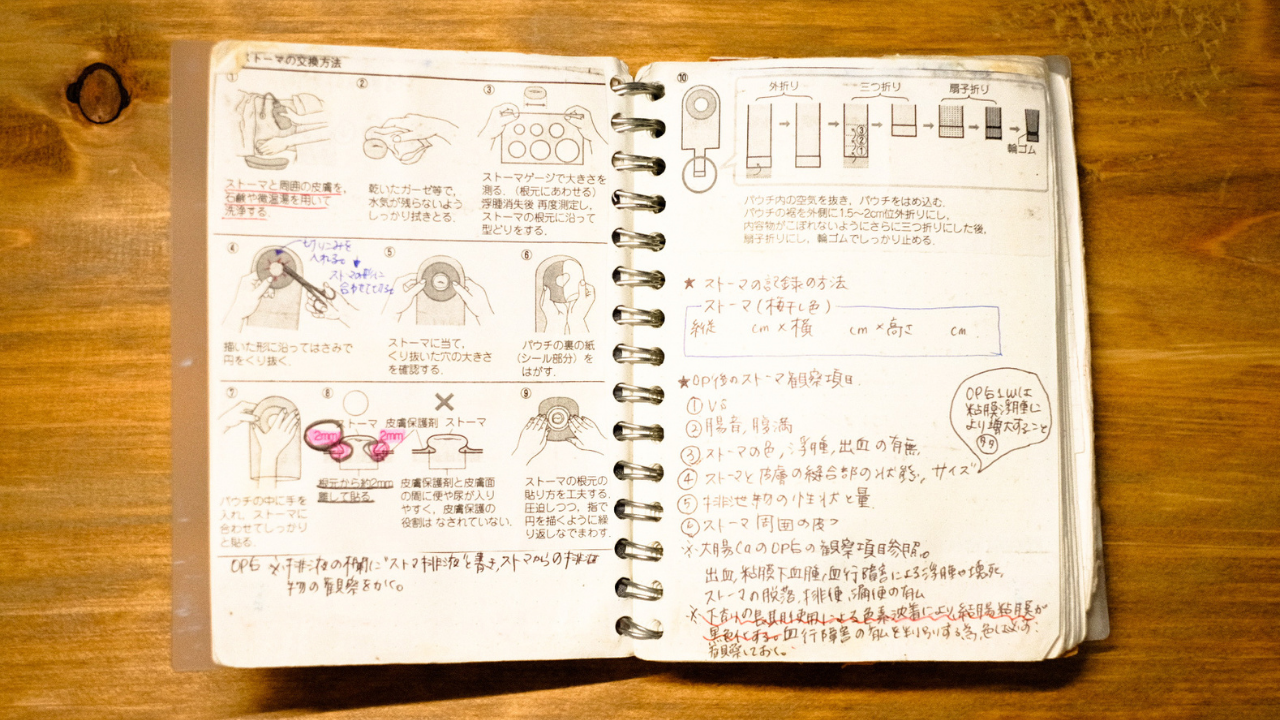 ストーマの交換方法
①
ストーマと周囲の皮膚を、
石鹸や微温湯を用いて
洗浄する.
②
乾いたガーゼ等で、
水気が残らないよう
しっかり拭きとる.
③
ストーマゲージで大きさを
測る.（根元にあわせる）
浮腫消失後 再度測定し、
ストーマの根元に沿って
型どりをする.
④
切りこみを
入れる。
ストマの形に
描いた形に沿ってはさみで
円をくり抜く.
⑤
ストーマに当て、
くり抜いた穴の大きさ
を確認する.
⑥
パウチの裏の紙
（シール部分）を
はがす.
⑦
パウチの中に手を
入れ、ストーマに
合わせてしっかり
と貼る.
⑧
ストーマ 皮膚保護剤 ストーマ
2mm 2mm
根元から約2mm
離して貼る.
皮膚保護剤と皮膚面
の間に便や尿が入り
やすく、皮膚保護の
役割は なされていない.
⑨
ストーマの根元の
貼り方を工夫する.
圧迫しつつ、指で
円を描くように繰
り返しなでまわす.
OPE ※排液の欄に"ストマ排液"と書き、ストマからの排泄
物の観察をかく。
⑩
外折り 三つ折り 扇子折り
③
②
①
輪ゴム
パウチ内の空気を抜き、パウチをはめ込む.
パウチの裾を外側に1.5〜2cm位外折りにし、
内容物がこぼれないようにさらに三つ折りにした後、
扇子折りにし、輪ゴムでしっかり止める.
★ ストーマの記録の方法
ストーマ(梅干し色)
縦 cm × 横 cm × 高さ cm
★OP後のストーマ観察項目.
① VS
② 腸音, 腹満
③ ストーマの色, 浮腫, 出血の有無.
④ ストーマと皮膚の縫合部の状態, サイズ
⑤ 排泄物の性状と量.
⑥ ストーマ周囲の皮フ
OPE1Wは
粘膜浮腫に
より増大すること
あり
※大腸CaのOPEの観察項目参照。
出血, 粘膜下血腫, 血行障害による浮腫や壊死,
ストーマの脱落, 排便, 漏便の有ム
※下剤の長期使用による色素沈着により、結腸粘膜が
黒色化する。血行障害の有ムを判別する為、色は必ず
観察しておく。